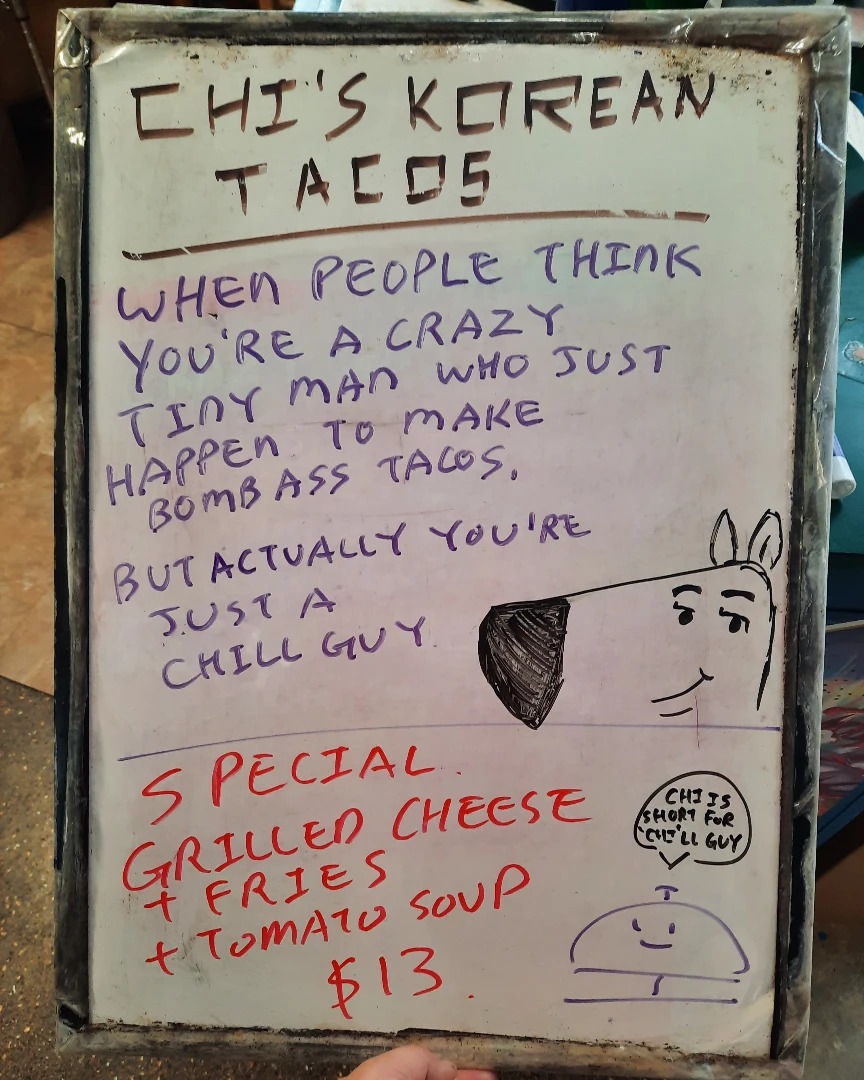 CHI'S KOREAN
TACOS
WHEN PEOPLE THINK
YOU'RE A CRAZY
TINY MAN WHO JUST
HAPPEN TO MAKE
BOMB ASS TACOS.
BUT ACTUALLY YOU'RE
JUST A
CHILL GUY
SPECIAL.
GRILLED CHEESE
+ FRIES
+ TOMATO SOUP
$13.
CHI IS
SHORT FOR
'CHI'LL GUY